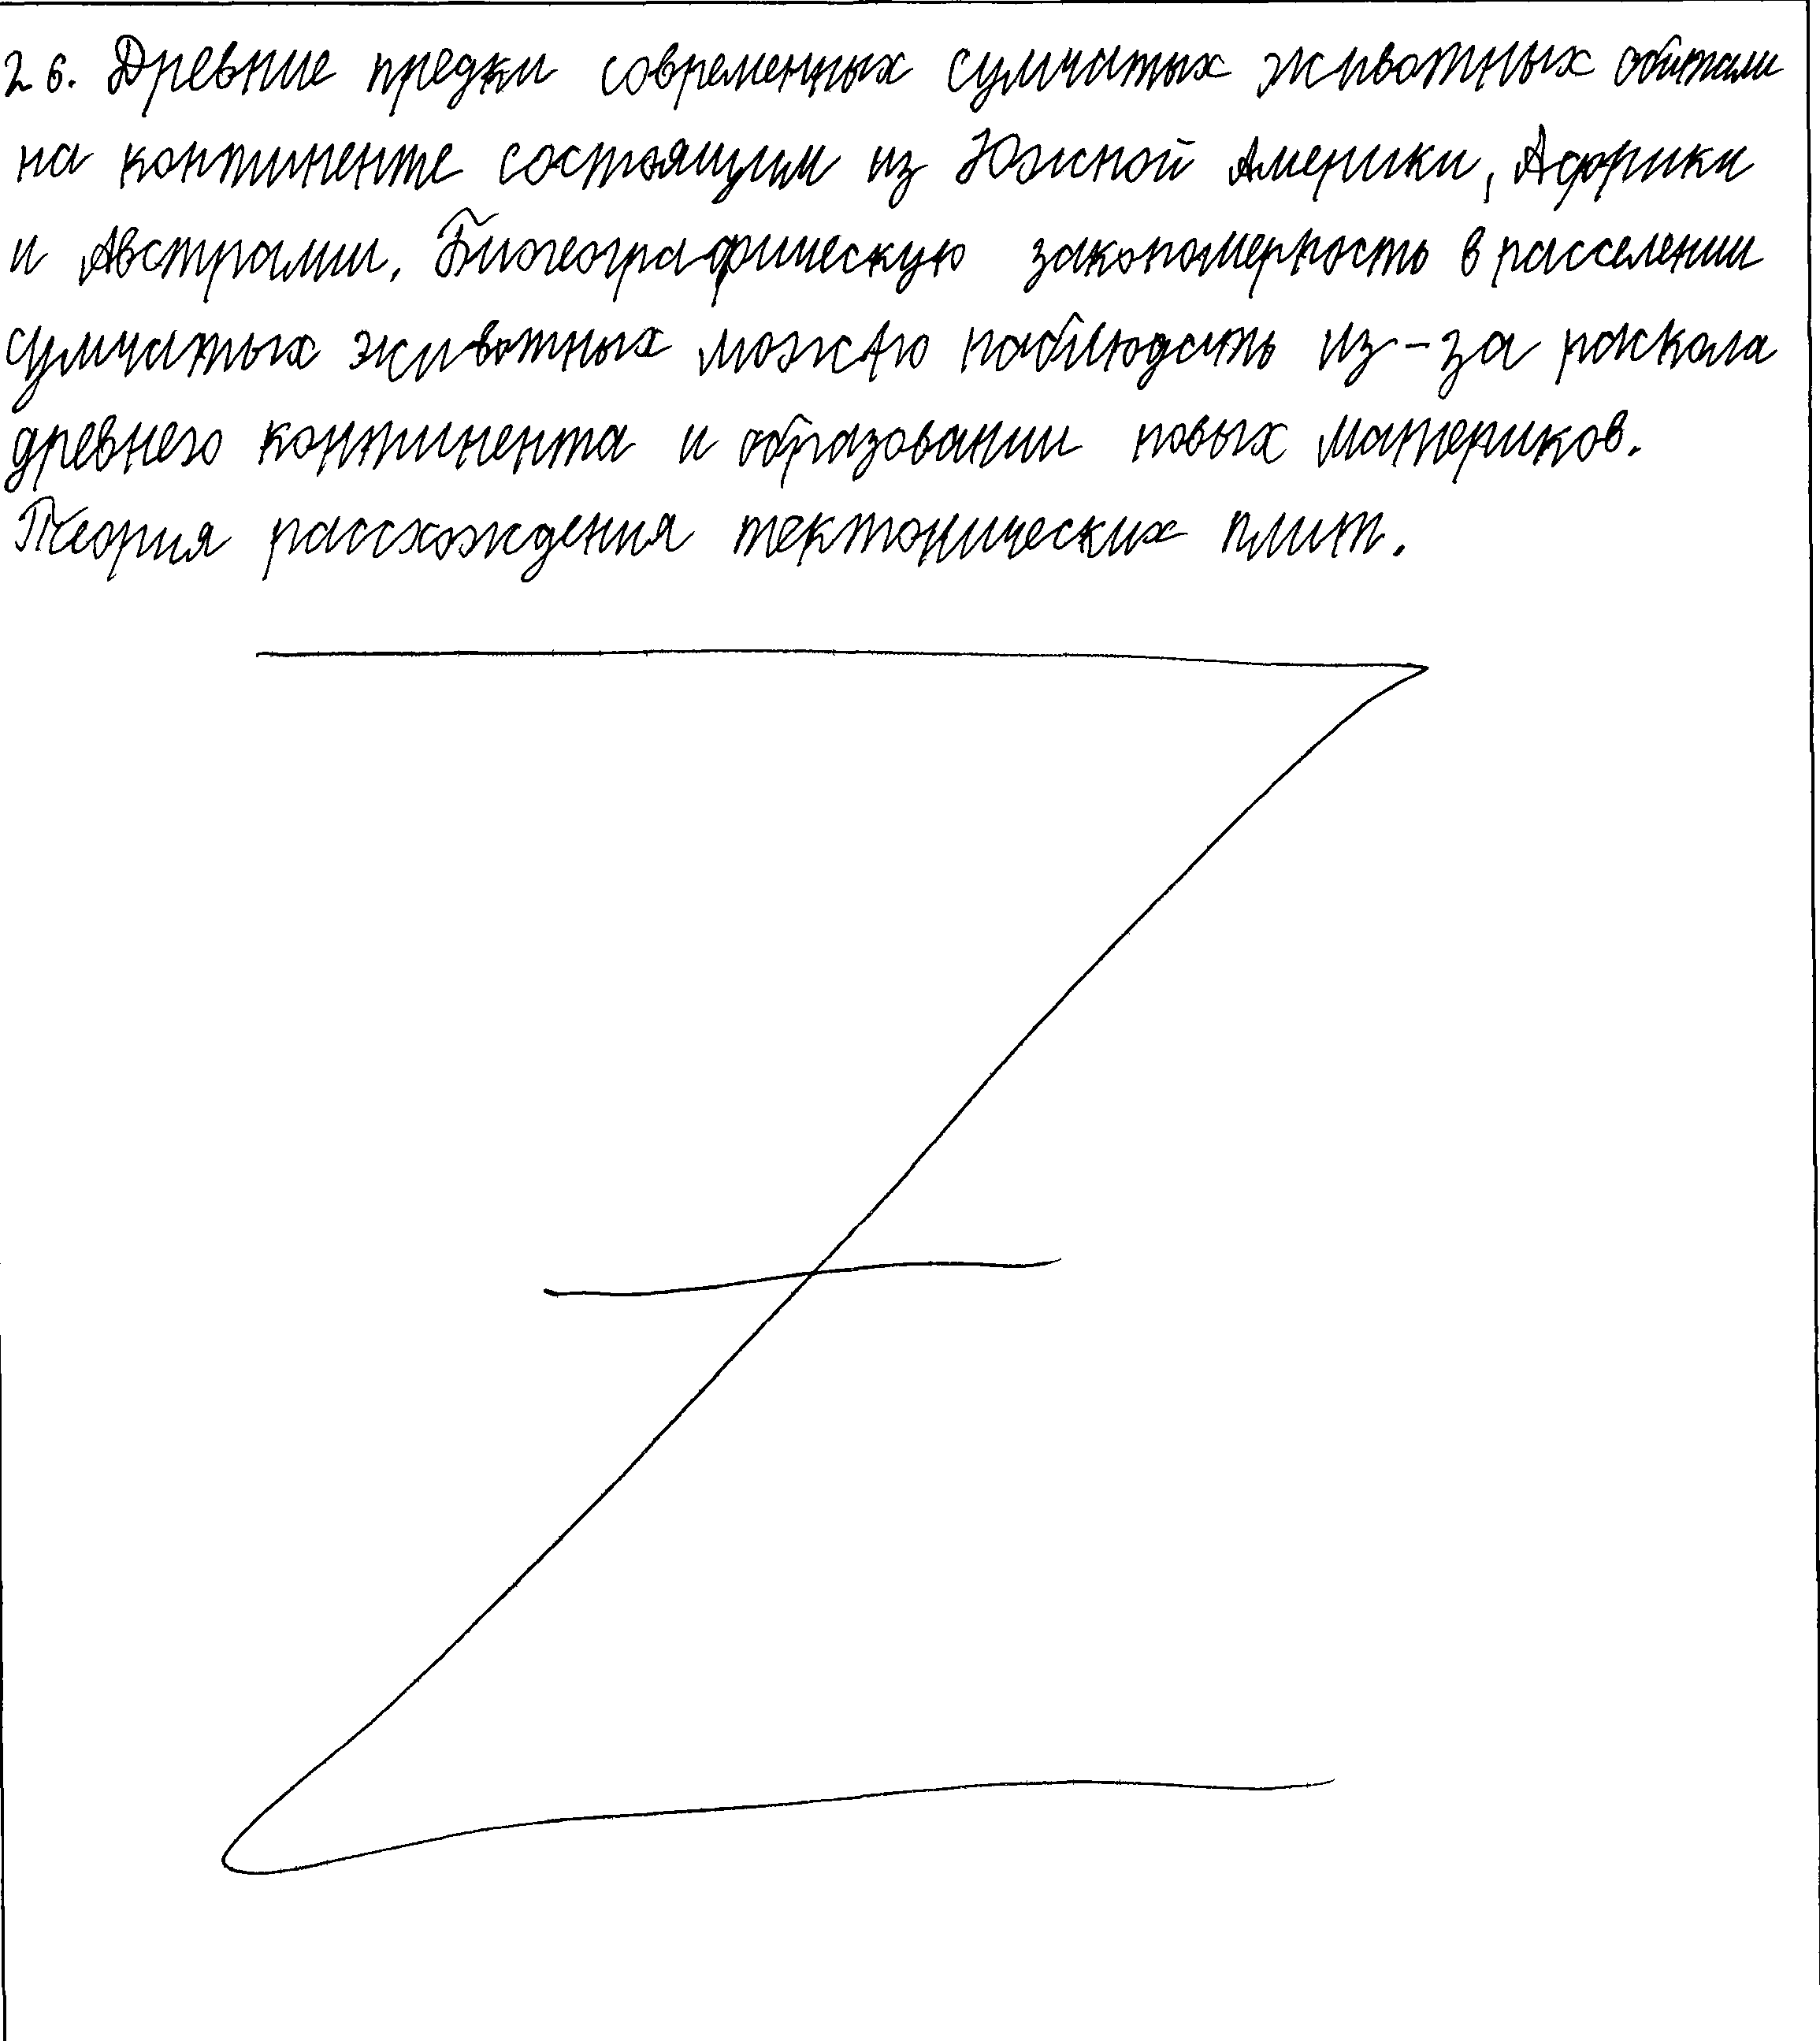 26. Древние предки современных сумчатых животных обитали
на континенте состоящим из Южной Америки, Африки
и Австралии. Биогеографическую закономерность в расселении
сумчатых животных можно наблюдать из-за раскола
древнего континента и образовании новых материков.
Теория рассхождения тектонических плит.